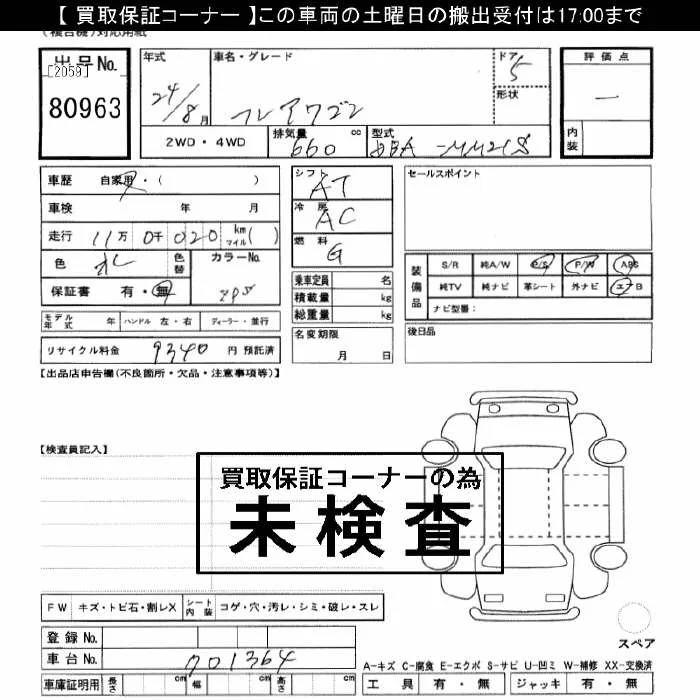 【 買取保証コーナー 】この車両の土曜日の搬出受付は17:00まで
(複合機)対応用紙
出品No.
[2059]
80963
年式
24/8月
車名・グレード
フレアワゴン
ドア
5
形状
評価点
—
内装
2WD・4WD
排気量 cc
660
型式
DBA-MM21S
車歴 自家用・( )
車検 年 月
走行 11万 0千 020 km マイル( )
色
色替
カラーNo.
ZPS
保証書 有・無
シフト
AT
冷房
AC
燃料
G
乗車定員 名
積載量 kg
総重量 kg
セールスポイント
装備品
S/R 純A/W P/S P/W ABS
純TV 純ナビ 革シート 外ナビ エアB
ナビ型番:
モデル年式 年 ハンドル 左・右 ディーラー・並行
名変期限
月 日
後日品
リサイクル料金 9340 円 預託済
【出品店申告欄(不良箇所・欠品・注意事項等)】
【検査員記入】
買取保証コーナーの為
未検査
FW キズ・トビ石・割レX シート内装 コゲ・穴・汚レ・シミ・破レ・スレ
スペア
登録No.
車台No. 701364
A-キズ C-腐食 E-エクボ S-サビ U-凹ミ W-補修 XX-交換済
車庫証明用 長さ cm 幅 cm 高さ cm
工具 有・無 ジャッキ 有・無